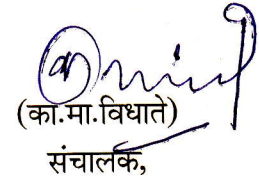 (का.मा.विधाते)
संचालक,